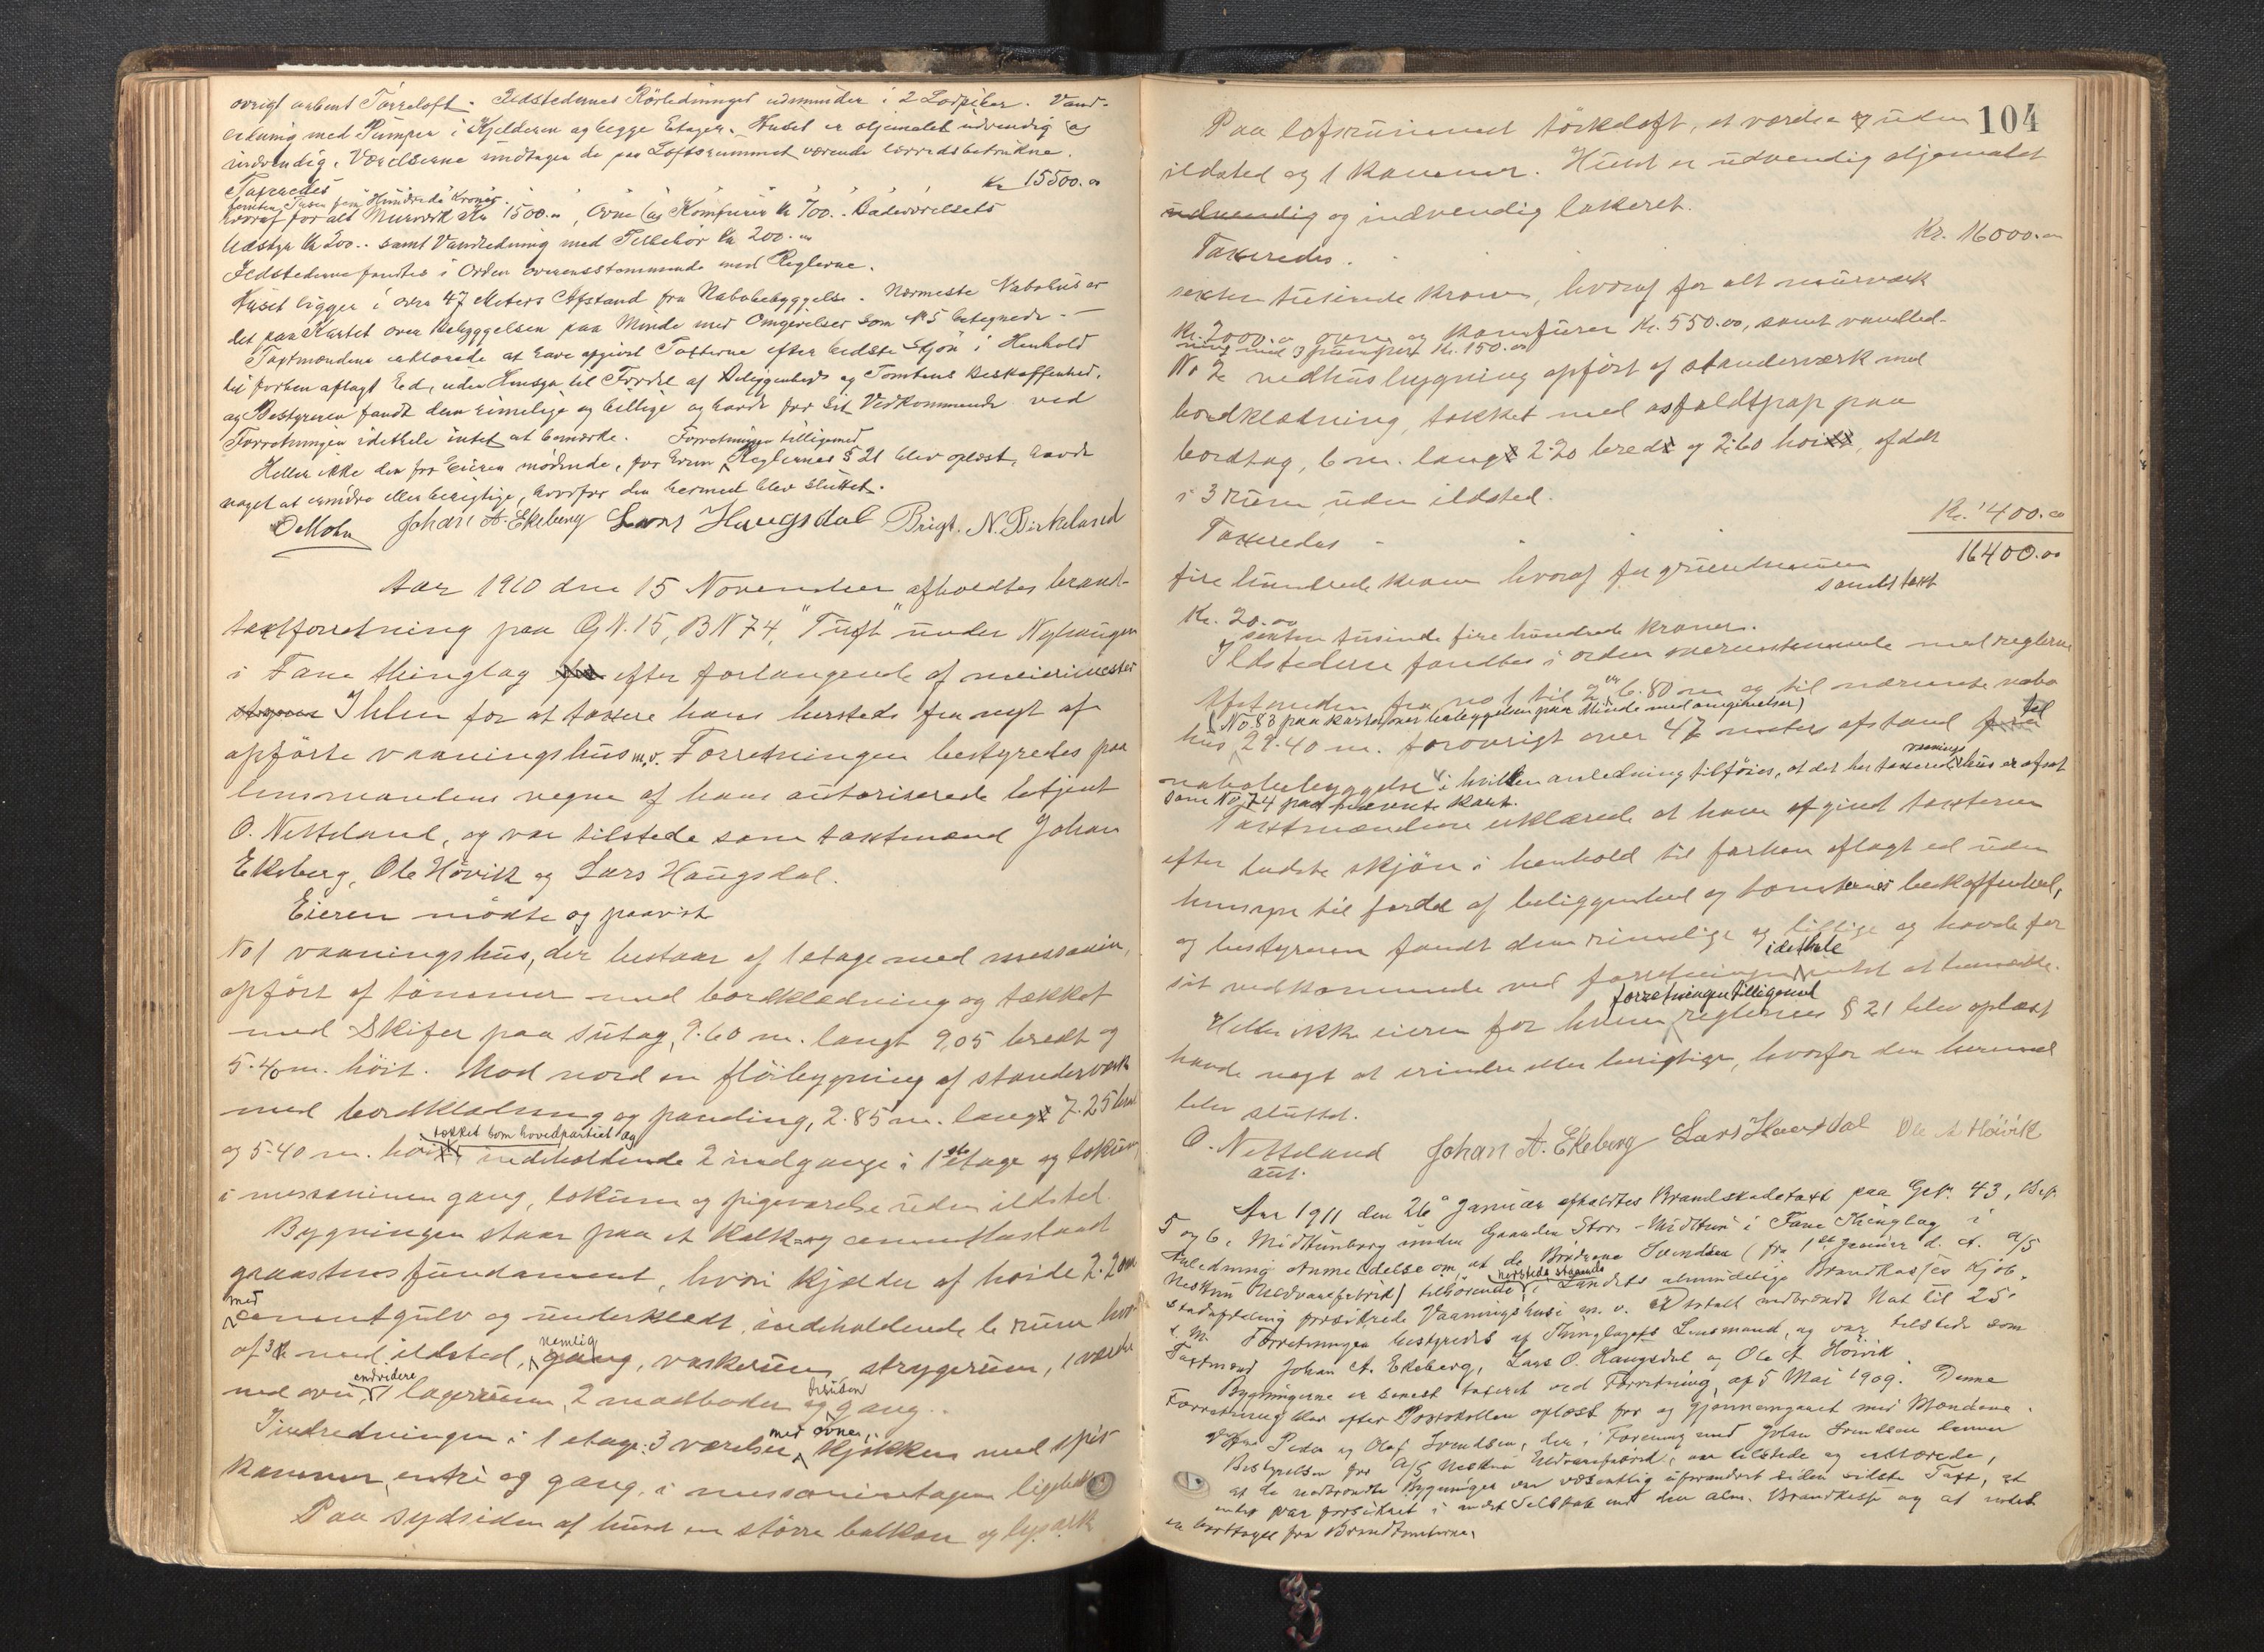 øvrigt aabent Tørreloft. Ildstedernes Rørledninger udmunder i 2 Lodpiber. Vand-
ledning med Pumper i Kjelderen og begge Etager. Huset er oljemalet udvendig og
indvendig. Værelserne undtagen de paa Loftsrummet værende lærredsbetrukne.
Taxeredes Kr 15500.00
femten Tusen fem Hundrede Kroner
hvoraf for alt Murværk Kr 1500.00, Ovne og Komfurer Kr 700.. Badeværelsets
Udstyr Kr 200.. samt Vandledning med Tilbehør Kr 200.00
Ildstederne fandtes i Orden overensstemmende med Reglerne.
Huset ligger i over 47 Meters Afstand fra Nabobebyggelse. Nærmeste Nabohus er
det paa Kartet over Bebyggelsen paa Minde med Omgivelser som No 5 betegnede.
Taxtmændene erklærede at have afgivet Taxterne efter bedste Skjøn i Henhold
til forhen aflagt Ed, uden Hensyn til Fordel af Beliggenheds og Tomtens Beskaffenhed,
og Bestyreren fandt dem rimelige og billige og havde for sit Vedkommende ved
Forretningen idethele intet at bemærke.
Heller ikke den for Eieren mødende, for hvem Forretningen tilligemed Reglernes § 21 blev oplæst, havde
noget at erindre eller berigtige, hvorfor den hermed blev sluttet.
O Mohn Johan A. Ekeberg Lars Haugsdal Brigt. N. Birkeland
Aar 1910 den 15 November afholdtes brand-
taxtforretning paa G.N. 15, B.N 74, "Tuft" under Nyhaugen
i Fane thinglag efter forlangende af meierimester
Ihlen for at taxere hans hersteds fra nyt af
opførte vaaningshus m.v. Forretningen bestyredes paa
lensmandens vegne af hans autoriserede betjent
O. Netteland, og var tilstede som taxtmænd Johan
Ekeberg, Ole Høvik og Lars Haugsdal.
Eieren mødte og paaviste
No 1 vaaningshus, der bestaar af 1 etage med messanin,
opført af tømmer med bordklædning og tækket
med Skifer paa sutag, 9.60 m. langt 9,05 bredt og
5.40 m. høit. Mod nord en fløibygning af standerværk
med bordklædning og panding, 2.85 m. lang 7.25 bred
og 5.40 m. høi, tækket som hovedpartiet og indeholdende 2 indgange i 1ste etage og lokum
i messaninen gang, lokum og pigeværelse uden ildsted.
Bygningen staar paa et kalk- og cementlastaad
graastensfundament, hvori kjælder af høide 2.20 m
med cementgulv og underklædt, indeholdende 6 rum hvor-
af 3 med ildsted, nemlig gang, vaskerum, strygerum, 1 værelse
med ovn, endvidere 1 lagerrum, 2 madboder og desuden gang.
Indredningen i 1 etage: 3 værelser med ovner, kjøkken med spis-
kammer, entré og gang, i messaninetagen ligeledes
Paa sydsiden af huset en større balkon og lysark
104
Paa loftsrummet tørkeloft, et værelse uden
ildsted og 1 kammer. Huset er udvendig oljemalet
udvendig og indvendig lakeret.
Taxeredes. Kr. 16000.00
sexten tusinde kroner, hvoraf for alt murværk
Kr. 2000.00 ovne og komfurer Kr. 550.00, samt vandled-
ning med 3 pumper Kr. 150.00
No 2 vedhusbygning opført af standerværk med
bordklædning, tækket med asfaldtpap paa
bordtag, 6 m. lang 2.20 bred og 2.60 høi, afdelt
i 3 rum uden ildsted.
Taxeredes Kr. 400.00
fire hundrede kroner hvoraf for grundmuren 16400.00
Kr. 20.00 samlet taxt
sexten tusinde fire hundrede kroner.
Ildstederne fandtes i orden overensstemmende med reglerne
Afstanden fra no 1 til 2 er 6.80 m og til nærmeste nabo
hus (No 83 paa kartet over bebyggelsen paa Minde med omgivelser) 29.40 m. forøvrigt over 47 meters afstand til
nabobebyggelse, i hvilken anledning tilføies, at det her taxerede vaaningshus er afsat
som No 74 paa nævnte kart.
Taxtmændene erklærede at have afgivet taxterne
efter bedste skjøn i henhold til forhen aflagt ed uden
hensyn til fordel af beliggenhed og tomternes beskaffenhed,
og bestyreren fandt dem rimelige og billige og havde for
sit vedkommende ved forretningen idethele intet at bemærke.
Heller ikke eieren for hvem forretningen tilligemed reglernes § 21 blev oplæst
havde noget at erindre eller berigtige, hvorfor den hermed
blev sluttet.
O. Netteland Johan A. Ekeberg Lars Haugsdal Ole A Høivik
aut.
Aar 1911 den 26 Januar afholdtes Brandskadetaxt paa Gr. 43, Br.
5 og 6, Midtunborg under Gaarden Store-Midttun i Fane Thinglag i
Anledning Anmeldelse om at de Brødrene Svendsen (fra 1ste Januar d. A. A/S
Nesttun Uldvarefabrik) tilhørende hersteds staaende i Landets almindelige Brandkasses Kjøb-
stadafdeling forsikrede Vaaningshuse m. v. totalt nedbrændt Nat til 25.
d. M. Forretningen bestyredes af Thinglagets Lensmand, og var tilstede som
Taxtmænd Johan A. Ekeberg, Lars O. Haugsdal og Ole A Høivik.
Bygningerne er senest taxeret ved Forretning af 5 Mai 1909. Denne
Forretning blev efter Protokollen oplæst for og gjennemgaaet med Mændene.
Peder og Olaf Svendsen, der i Forening med Johan Svendsen danner
Bestyrelsen for A/S Nesttun Uldvarefabrik, var tilstede og erklærede,
at de nedbrændte Bygninger var væsentlig uforandret siden sidste Taxt, at
intet var forsikret i andet Selskab end den alm. Brandkasse og at intet
er borttaget fra Brandtomterne.